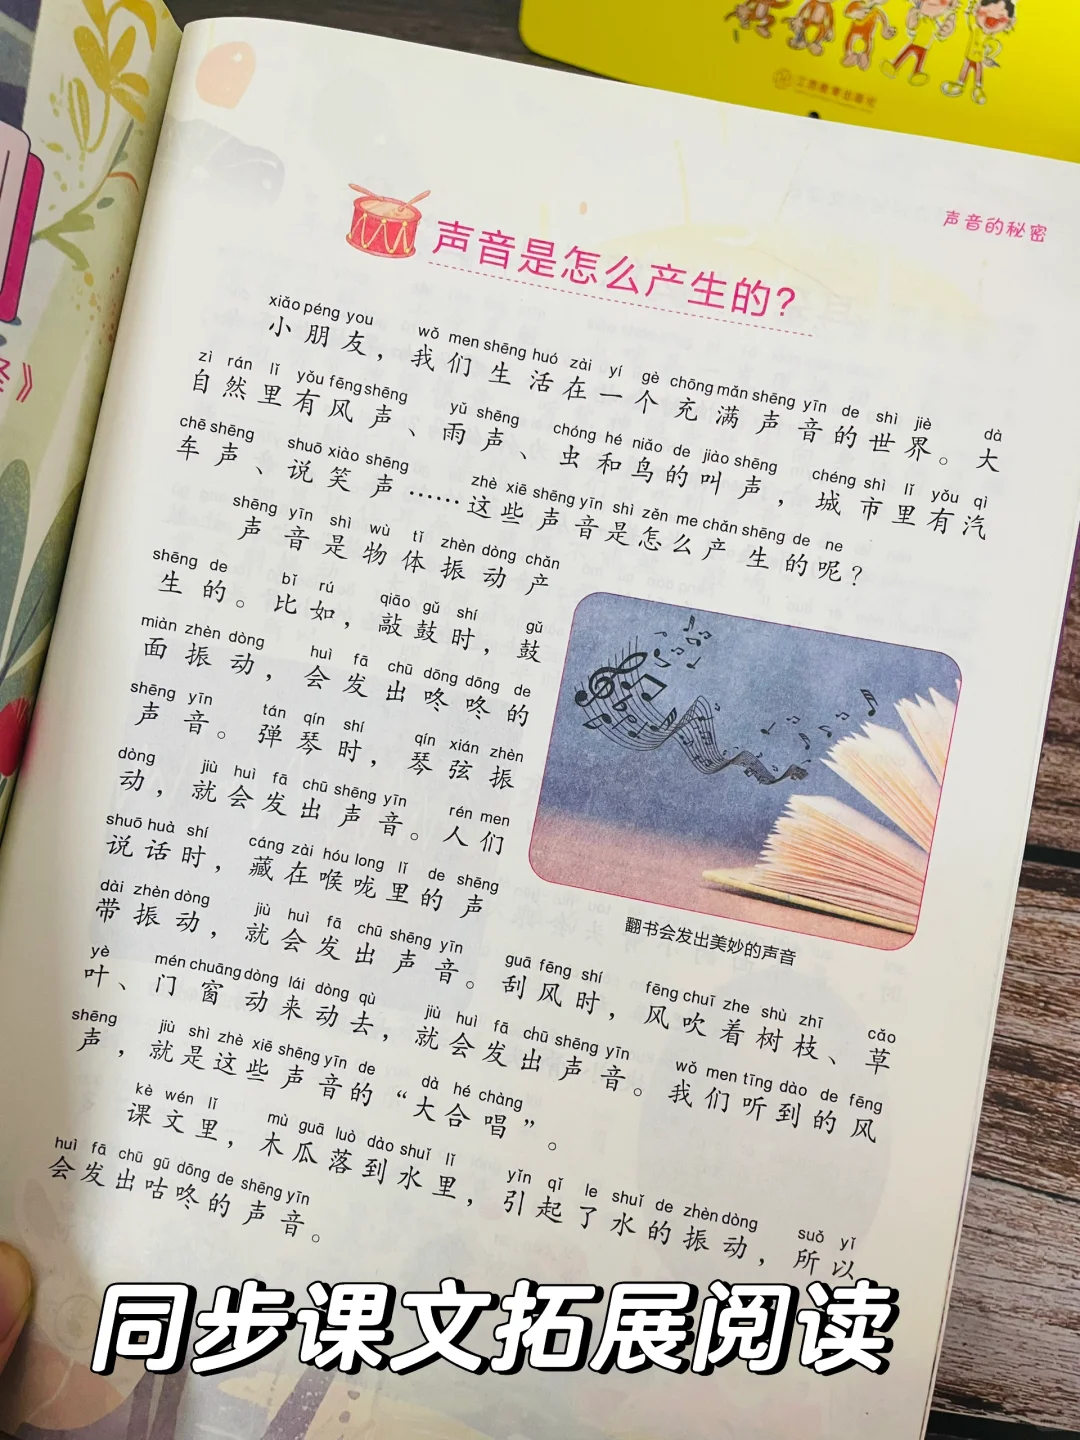 江西教育出版社
声音的秘密
声音是怎么产生的？
xiǎo péng you wǒ men shēng huó zài yí gè chōng mǎn shēng yīn de shì jiè dà
小朋友，我们生活在一个充满声音的世界。大
zì rán lǐ yǒu fēng shēng yǔ shēng chóng hé niǎo de jiào shēng chéng shì lǐ yǒu qì
自然里有风声、雨声、虫和鸟的叫声，城市里有汽
chē shēng shuō xiào shēng zhè xiē shēng yīn shì zěn me chǎn shēng de ne
车声、说笑声……这些声音是怎么产生的呢？
shēng yīn shì wù tǐ zhèn dòng chǎn
声音是物体振动产
shēng de bǐ rú qiāo gǔ shí gǔ
生的。比如，敲鼓时，鼓
miàn zhèn dòng huì fā chū dōng dōng de
面振动，会发出咚咚的
shēng yīn tán qín shí qín xián zhèn
声音。弹琴时，琴弦振
dòng jiù huì fā chū shēng yīn rén men
动，就会发出声音。人们
shuō huà shí cáng zài hóu long lǐ de shēng
说话时，藏在喉咙里的声
dài zhèn dòng jiù huì fā chū shēng yīn guā fēng shí fēng chuī zhe shù zhī cǎo
带振动，就会发出声音。刮风时，风吹着树枝、草
yè mén chuāng dòng lái dòng qù jiù huì fā chū shēng yīn wǒ men tīng dào de fēng
叶、门窗动来动去，就会发出声音。我们听到的风
shēng jiù shì zhè xiē shēng yīn de dà hé chàng
声，就是这些声音的“大合唱”。
kè wén lǐ mù guā luò dào shuǐ lǐ yǐn qǐ le shuǐ de zhèn dòng suǒ yǐ
课文里，木瓜落到水里，引起了水的振动，所以
huì fā chū gū dōng de shēng yīn
会发出咕咚的声音。
翻书会发出美妙的声音
同步课文拓展阅读